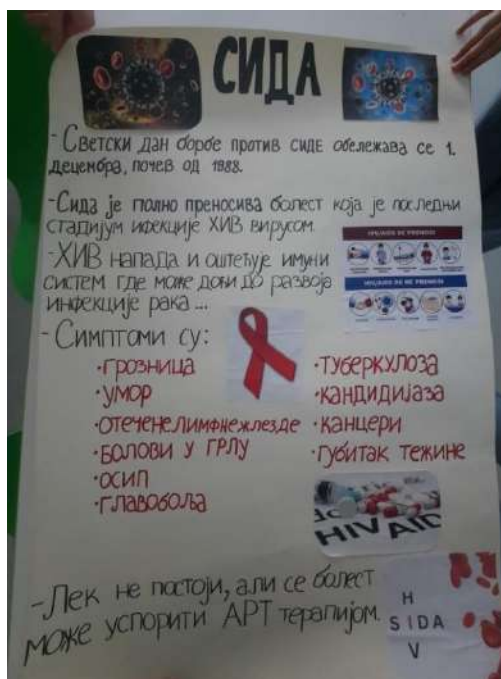 СИДА
- Светски дан борбе против СИДЕ обележава се 1.
децембра, почев од 1988.
- Сида је полно преносива болест која је последњи
стадијум ифекције ХИВ вирусом.
- ХИВ напада и оштећује имуни
систем где може доћи до развоја
инфекције рака ...
HIV/AIDS SE PRENOSI
HIV/AIDS NE PRENOSI
- Симптоми су:
·грозница
·умор
·отечене лимфне жлезде
·болови у грлу
·осип
·главобоља
·туберкулоза
·кандидијаза
·канцери
·губитак тежине
HIV AID
- Лек не постоји, али се болест
може успорити АРТ терапијом.
H
SIDA
V